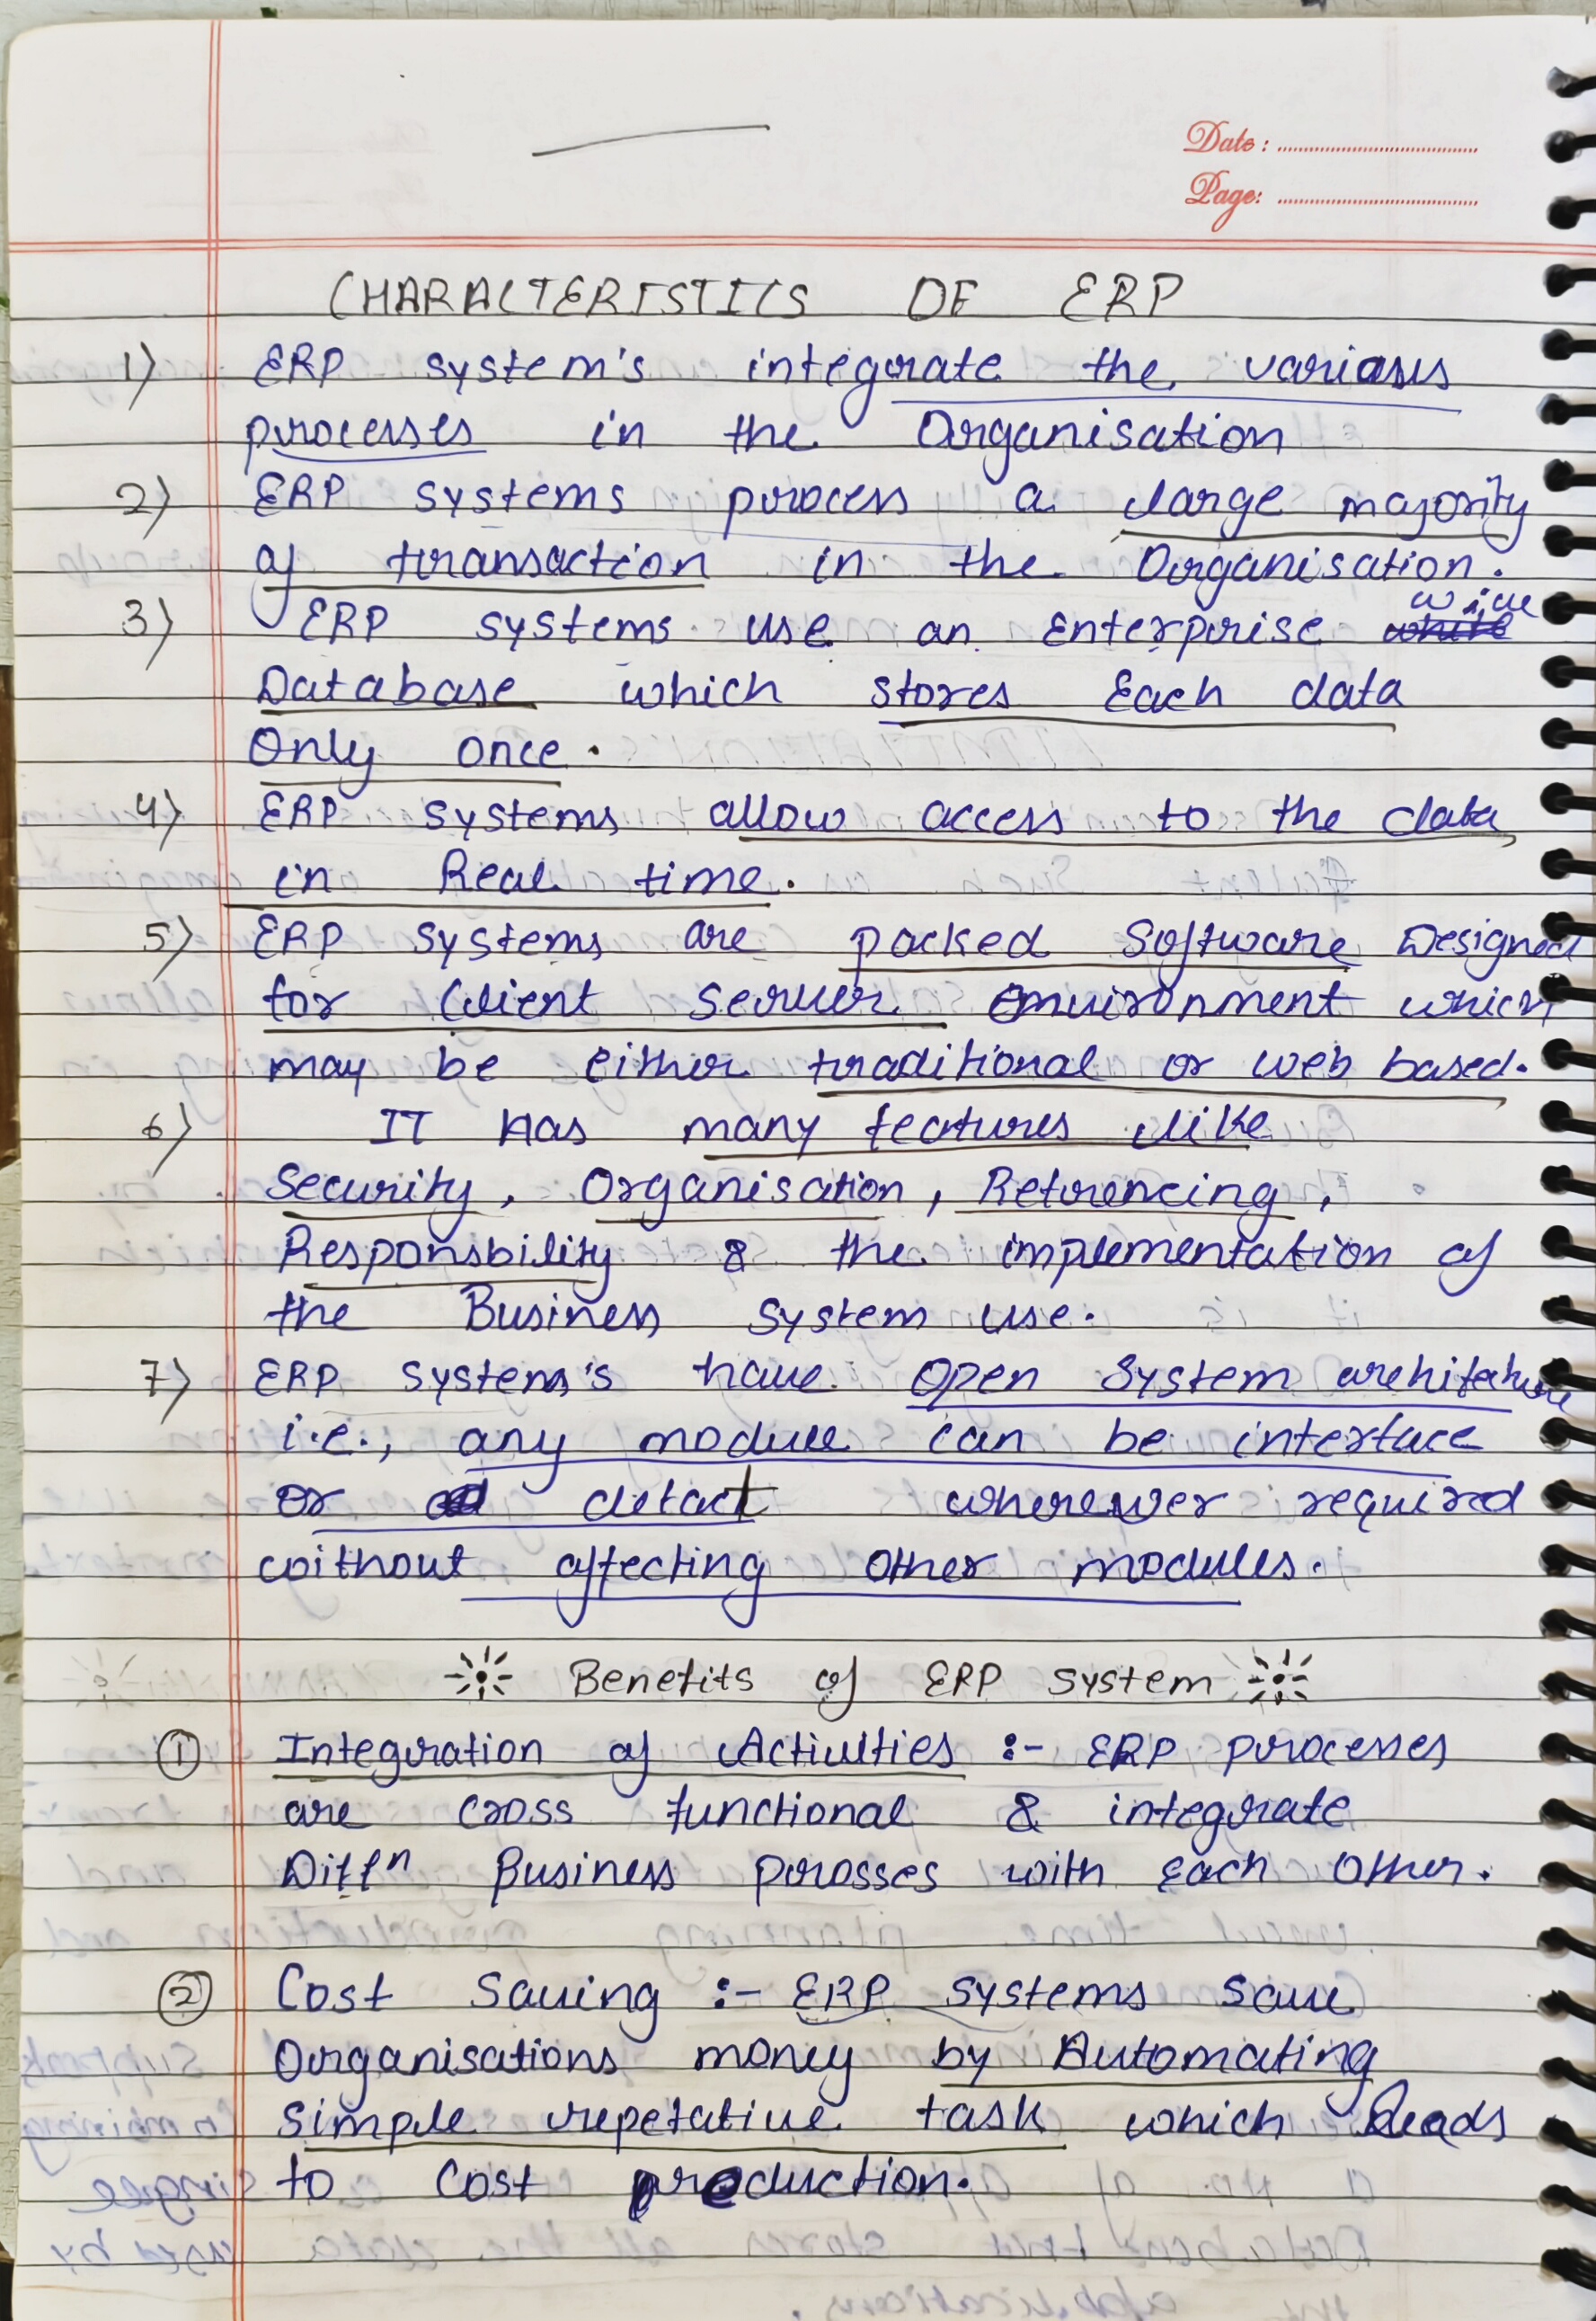 Date :
Page:
CHARACTERISTICS OF ERP
1) ERP system's integrate the various
processes in the Organisation
2) ERP systems process a large majority
of transaction in the Organisation.
3) ERP systems use an Enterprise wide
Database which stores Each data
Only once.
4) ERP systems allow access to the data
in Real time.
5) ERP systems are packed Software Designed
for Client Server environment which
may be either traditional or web based.
6) IT has many features like
Security, Organisation, Retrencing,
Responsbility & the implementation of
the Business System use.
7) ERP systems's have Open System architecture
i.e., any module can be interface
or detact wherever required
without affecting other modules.
Benefits of ERP System
① Integration of Activities :- ERP processes
are cross functional & integrate
Diffn Business prosses with Each Other.
② Cost Saving :- ERP Systems Save
Organisations money by Automating
Simple repetative task which leads
to Cost